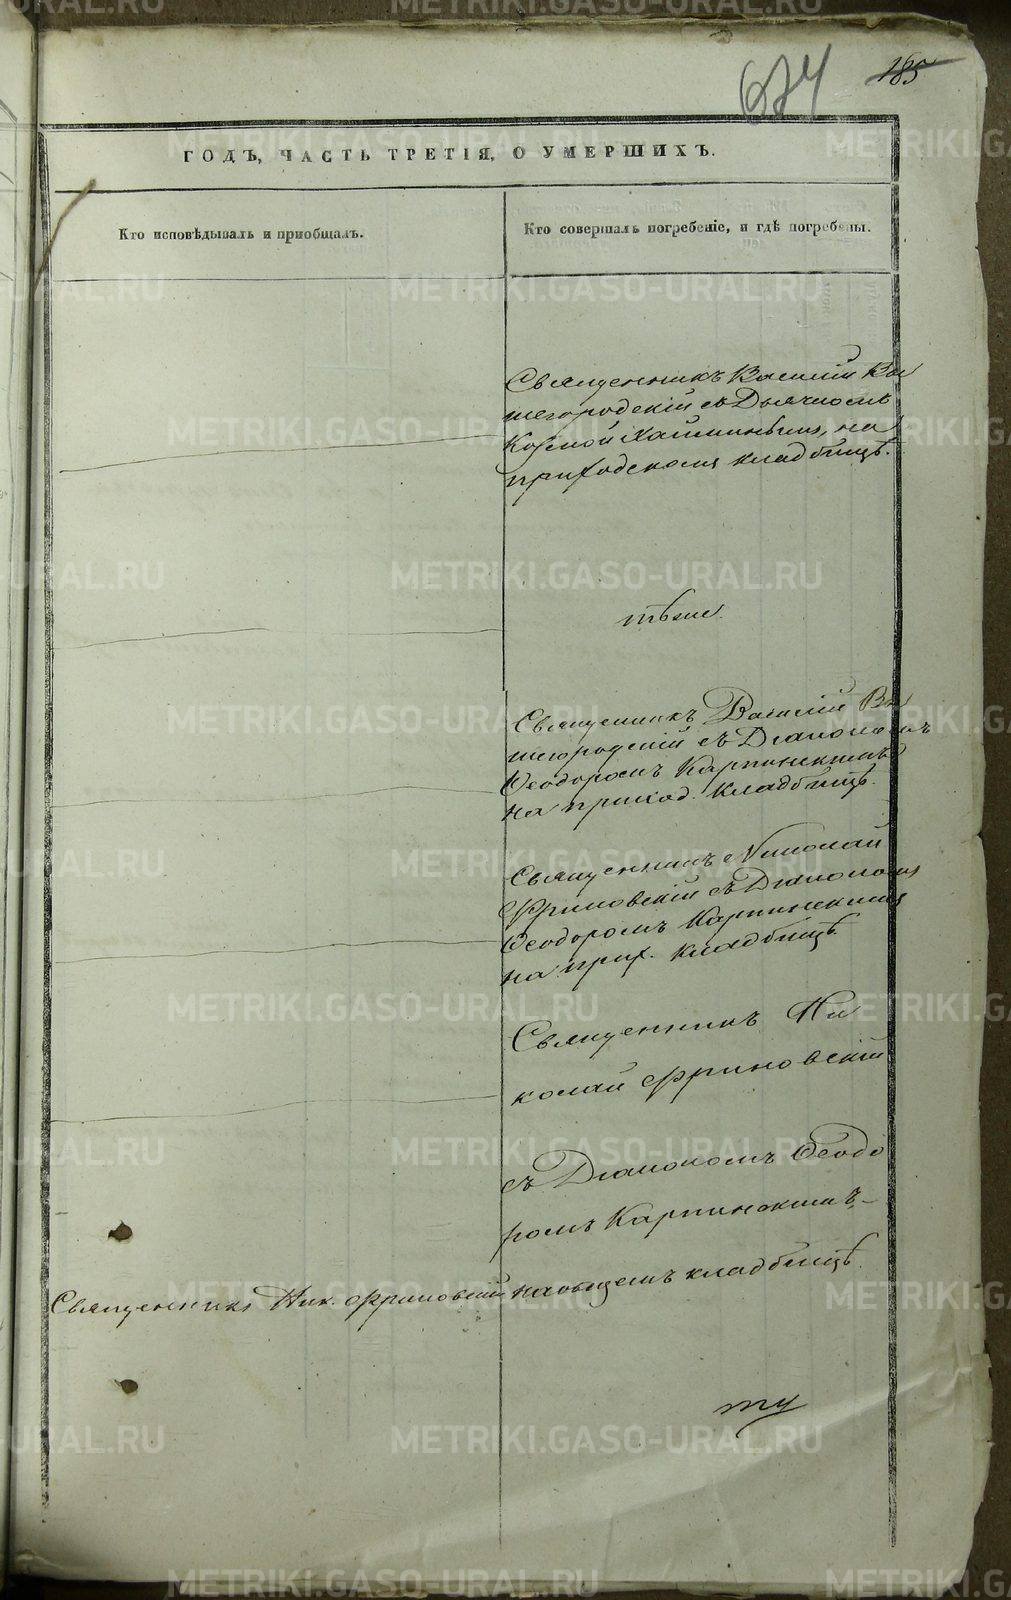 674 185
ГОДЪ, ЧАСТЬ ТРЕТІЯ, О УМЕРШИХЪ.
Кто исповѣдывалъ и пріобщалъ.
Кто совершалъ погребеніе, и гдѣ погребены.
Священникъ Василій Вы
шегородскій съ Дьячкомъ
Козмой Хайминымъ, на
приходскомъ кладбищѣ.
тѣже
Священникъ Василій Вы
шегородскій съ Діакономъ
Ѳеодоромъ Карпинскимъ
на приход. кладбищѣ.
Священникъ Николай
Фриновскій съ Діакономъ
Ѳеодоромъ Карпинскимъ
на прих. кладбищѣ
Священникъ Ни
колай Фриновскій
съ Діакономъ Ѳеодо
ромъ Карпинскимъ
Священникъ Ник. Фриновскій на общемъ кладбищѣ.
METRIKI.GASO-URAL.RU